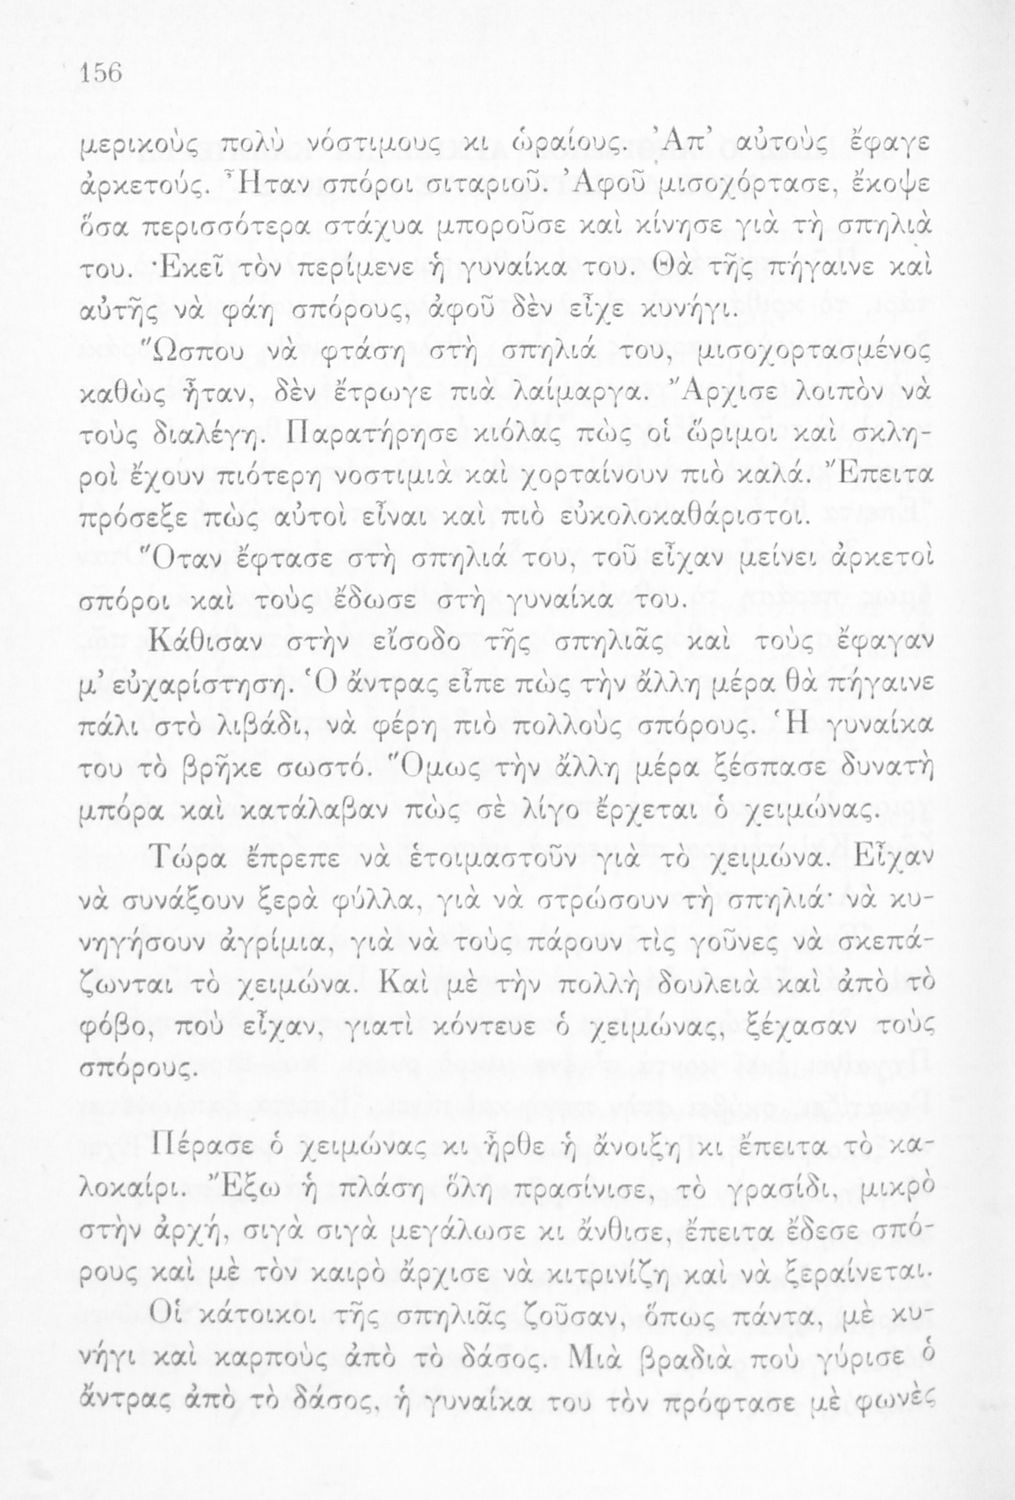 156
μερικοὺς πολὺ νόστιμους κι ὡραίους. Ἀπ’ αὐτοὺς ἔφαγε
ἀρκετούς. Ἦταν σπόροι σιταριοῦ. Ἀφοῦ μισοχόρτασε, ἔκοψε
ὅσα περισσότερα στάχυα μποροῦσε καὶ κίνησε γιὰ τὴ σπηλιὰ
του. Ἐκεῖ τὸν περίμενε ἡ γυναίκα του. Θὰ τῆς πήγαινε καὶ
αὐτῆς νὰ φάη σπόρους, ἀφοῦ δὲν εἶχε κυνήγι.
Ὥσπου νὰ φτάση στὴ σπηλιά του, μισοχορτασμένος
καθὼς ἦταν, δὲν ἔτρωγε πιὰ λαίμαργα. Ἄρχισε λοιπὸν νὰ
τοὺς διαλέγη. Παρατήρησε κιόλας πὼς οἱ ὥριμοι καὶ σκλη-
ροὶ ἔχουν πιότερη νοστιμιὰ καὶ χορταίνουν πιὸ καλά. Ἔπειτα
πρόσεξε πὼς αὐτοὶ εἶναι καὶ πιὸ εὐκολοκαθάριστοι.
Ὅταν ἔφτασε στὴ σπηλιά του, τοῦ εἶχαν μείνει ἀρκετοὶ
σπόροι καὶ τοὺς ἔδωσε στὴ γυναίκα του.
Κάθισαν στὴν εἴσοδο τῆς σπηλιᾶς καὶ τοὺς ἔφαγαν
μ’ εὐχαρίστηση. Ὁ ἄντρας εἶπε πὼς τὴν ἄλλη μέρα θὰ πήγαινε
πάλι στὸ λιβάδι, νὰ φέρη πιὸ πολλοὺς σπόρους. Ἡ γυναίκα
του τὸ βρῆκε σωστό. Ὅμως τὴν ἄλλη μέρα ξέσπασε δυνατὴ
μπόρα καὶ κατάλαβαν πὼς σὲ λίγο ἔρχεται ὁ χειμώνας.
Τώρα ἔπρεπε νὰ ἑτοιμαστοῦν γιὰ τὸ χειμώνα. Εἶχαν
νὰ συνάξουν ξερὰ φύλλα, γιὰ νὰ στρώσουν τὴ σπηλιά· νὰ κυ-
νηγήσουν ἀγρίμια, γιὰ νὰ τοὺς πάρουν τὶς γοῦνες νὰ σκεπά-
ζωνται τὸ χειμώνα. Καὶ μὲ τὴν πολλὴ δουλειὰ καὶ ἀπὸ τὸ
φόβο, ποὺ εἶχαν, γιατὶ κόντευε ὁ χειμώνας, ξέχασαν τοὺς
σπόρους.
Πέρασε ὁ χειμώνας κι ἦρθε ἡ ἄνοιξη κι ἔπειτα τὸ κα-
λοκαίρι. Ἔξω ἡ πλάση ὅλη πρασίνισε, τὸ γρασίδι, μικρὸ
στὴν ἀρχή, σιγὰ σιγὰ μεγάλωσε κι ἄνθισε, ἔπειτα ἔδεσε σπό-
ρους καὶ μὲ τὸν καιρὸ ἄρχισε νὰ κιτρινίζη καὶ νὰ ξεραίνεται.
Οἱ κάτοικοι τῆς σπηλιᾶς ζοῦσαν, ὅπως πάντα, μὲ κυ-
νήγι καὶ καρποὺς ἀπὸ τὸ δάσος. Μιὰ βραδιὰ ποὺ γύρισε ὁ
ἄντρας ἀπὸ τὸ δάσος, ἡ γυναίκα του τὸν πρόφτασε μὲ φωνὲς